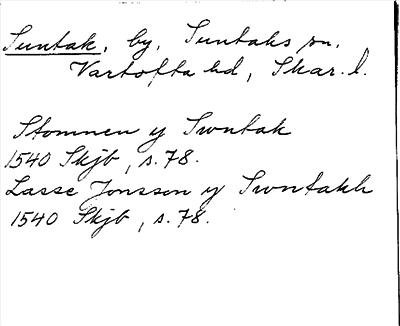 Suntak, by, Suntaks sn,
Vartofta hd, Skar. l.
Stomnen y Swntak
1540 Skjb, s. 78.
Lasse Jonsson y Swntakh
1540 Skjb, s. 78.